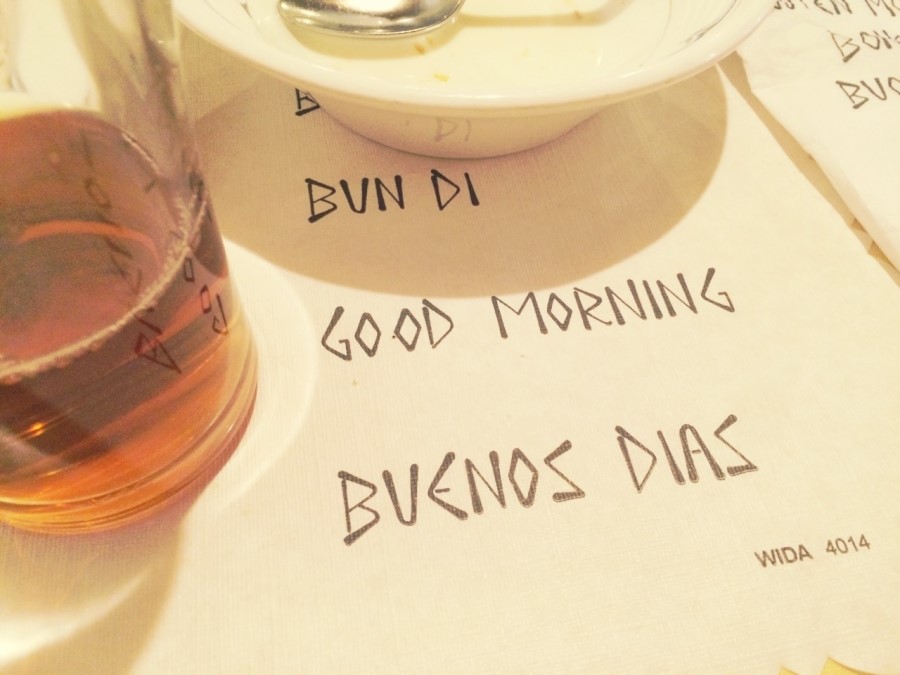 BUN DI
GOOD MORNING
BUENOS DIAS
WIDA 4014